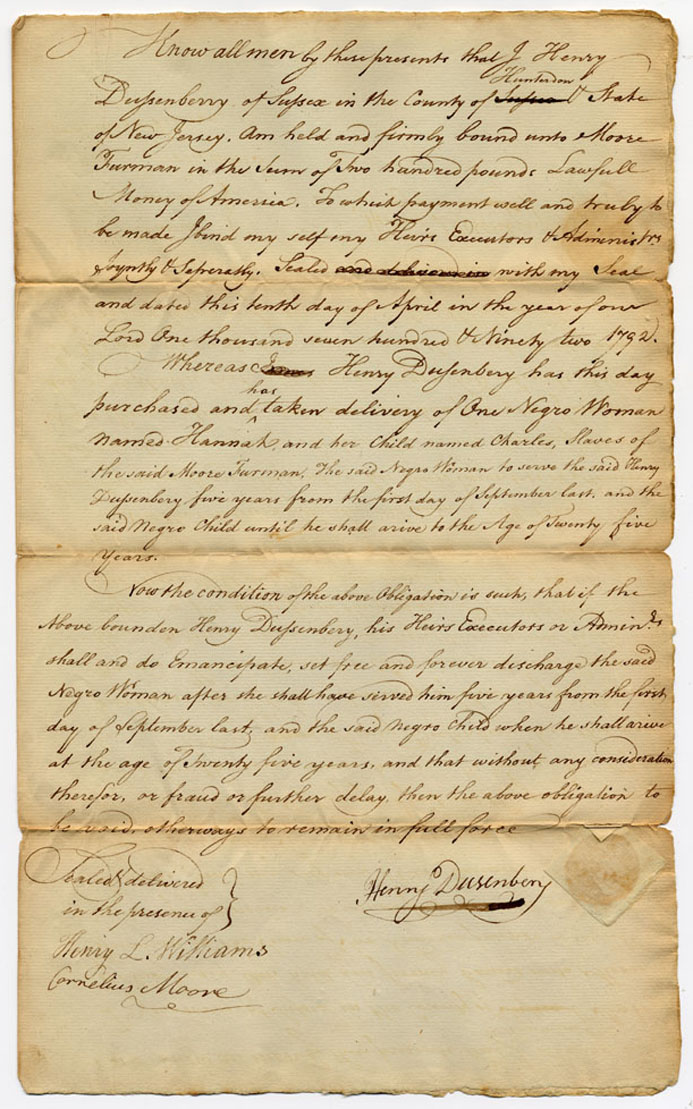 Know all men by these presents that I Henry
Hunterdon
Dussenberry of Sussex in the County of Sussex & State
of New Jersey. Am held and firmly bound unto Moore
Furman in the Sum of Two hundred pounds Lawfull
Money of America. To which payment well and truly to
be made I bind my self my Heirs Executors & Administrs
Joyntly & Seperatly. Sealed and delivered in with my Seal
and dated this tenth day of April in the year of our
Lord One thousand seven hundred & Ninety two 1792.
Whereas Henry Dussenbery has this day
has
purchased and ^ taken delivery of One Negro Woman
named Hannah, and her Child named Charles, Slaves of
the said Moore Furman, The said Negro Woman to serve the said Henry
Dussenbery five years from the first day of September last, and the
said Negro Child until he shall arive to the Age of Twenty five
Years.
Now the condition of the above Obligation is such, that if the
Above bounden Henry Dussenbery, his Heirs Executors or Admin.rs
shall and do Emancipate, set free and forever discharge the said
Negro Woman after she shall have served him five years from the first
day of September last, and the said negro Child when he shall arive
at the age of Twenty five years, and that without any consideration
therefor, or fraud or further delay, then the above obligation to
be void, otherways to remain in full force
Sealed & delivered
in the presence of
Henry Dusenbery
Henry L. Williams
Cornelius Moore